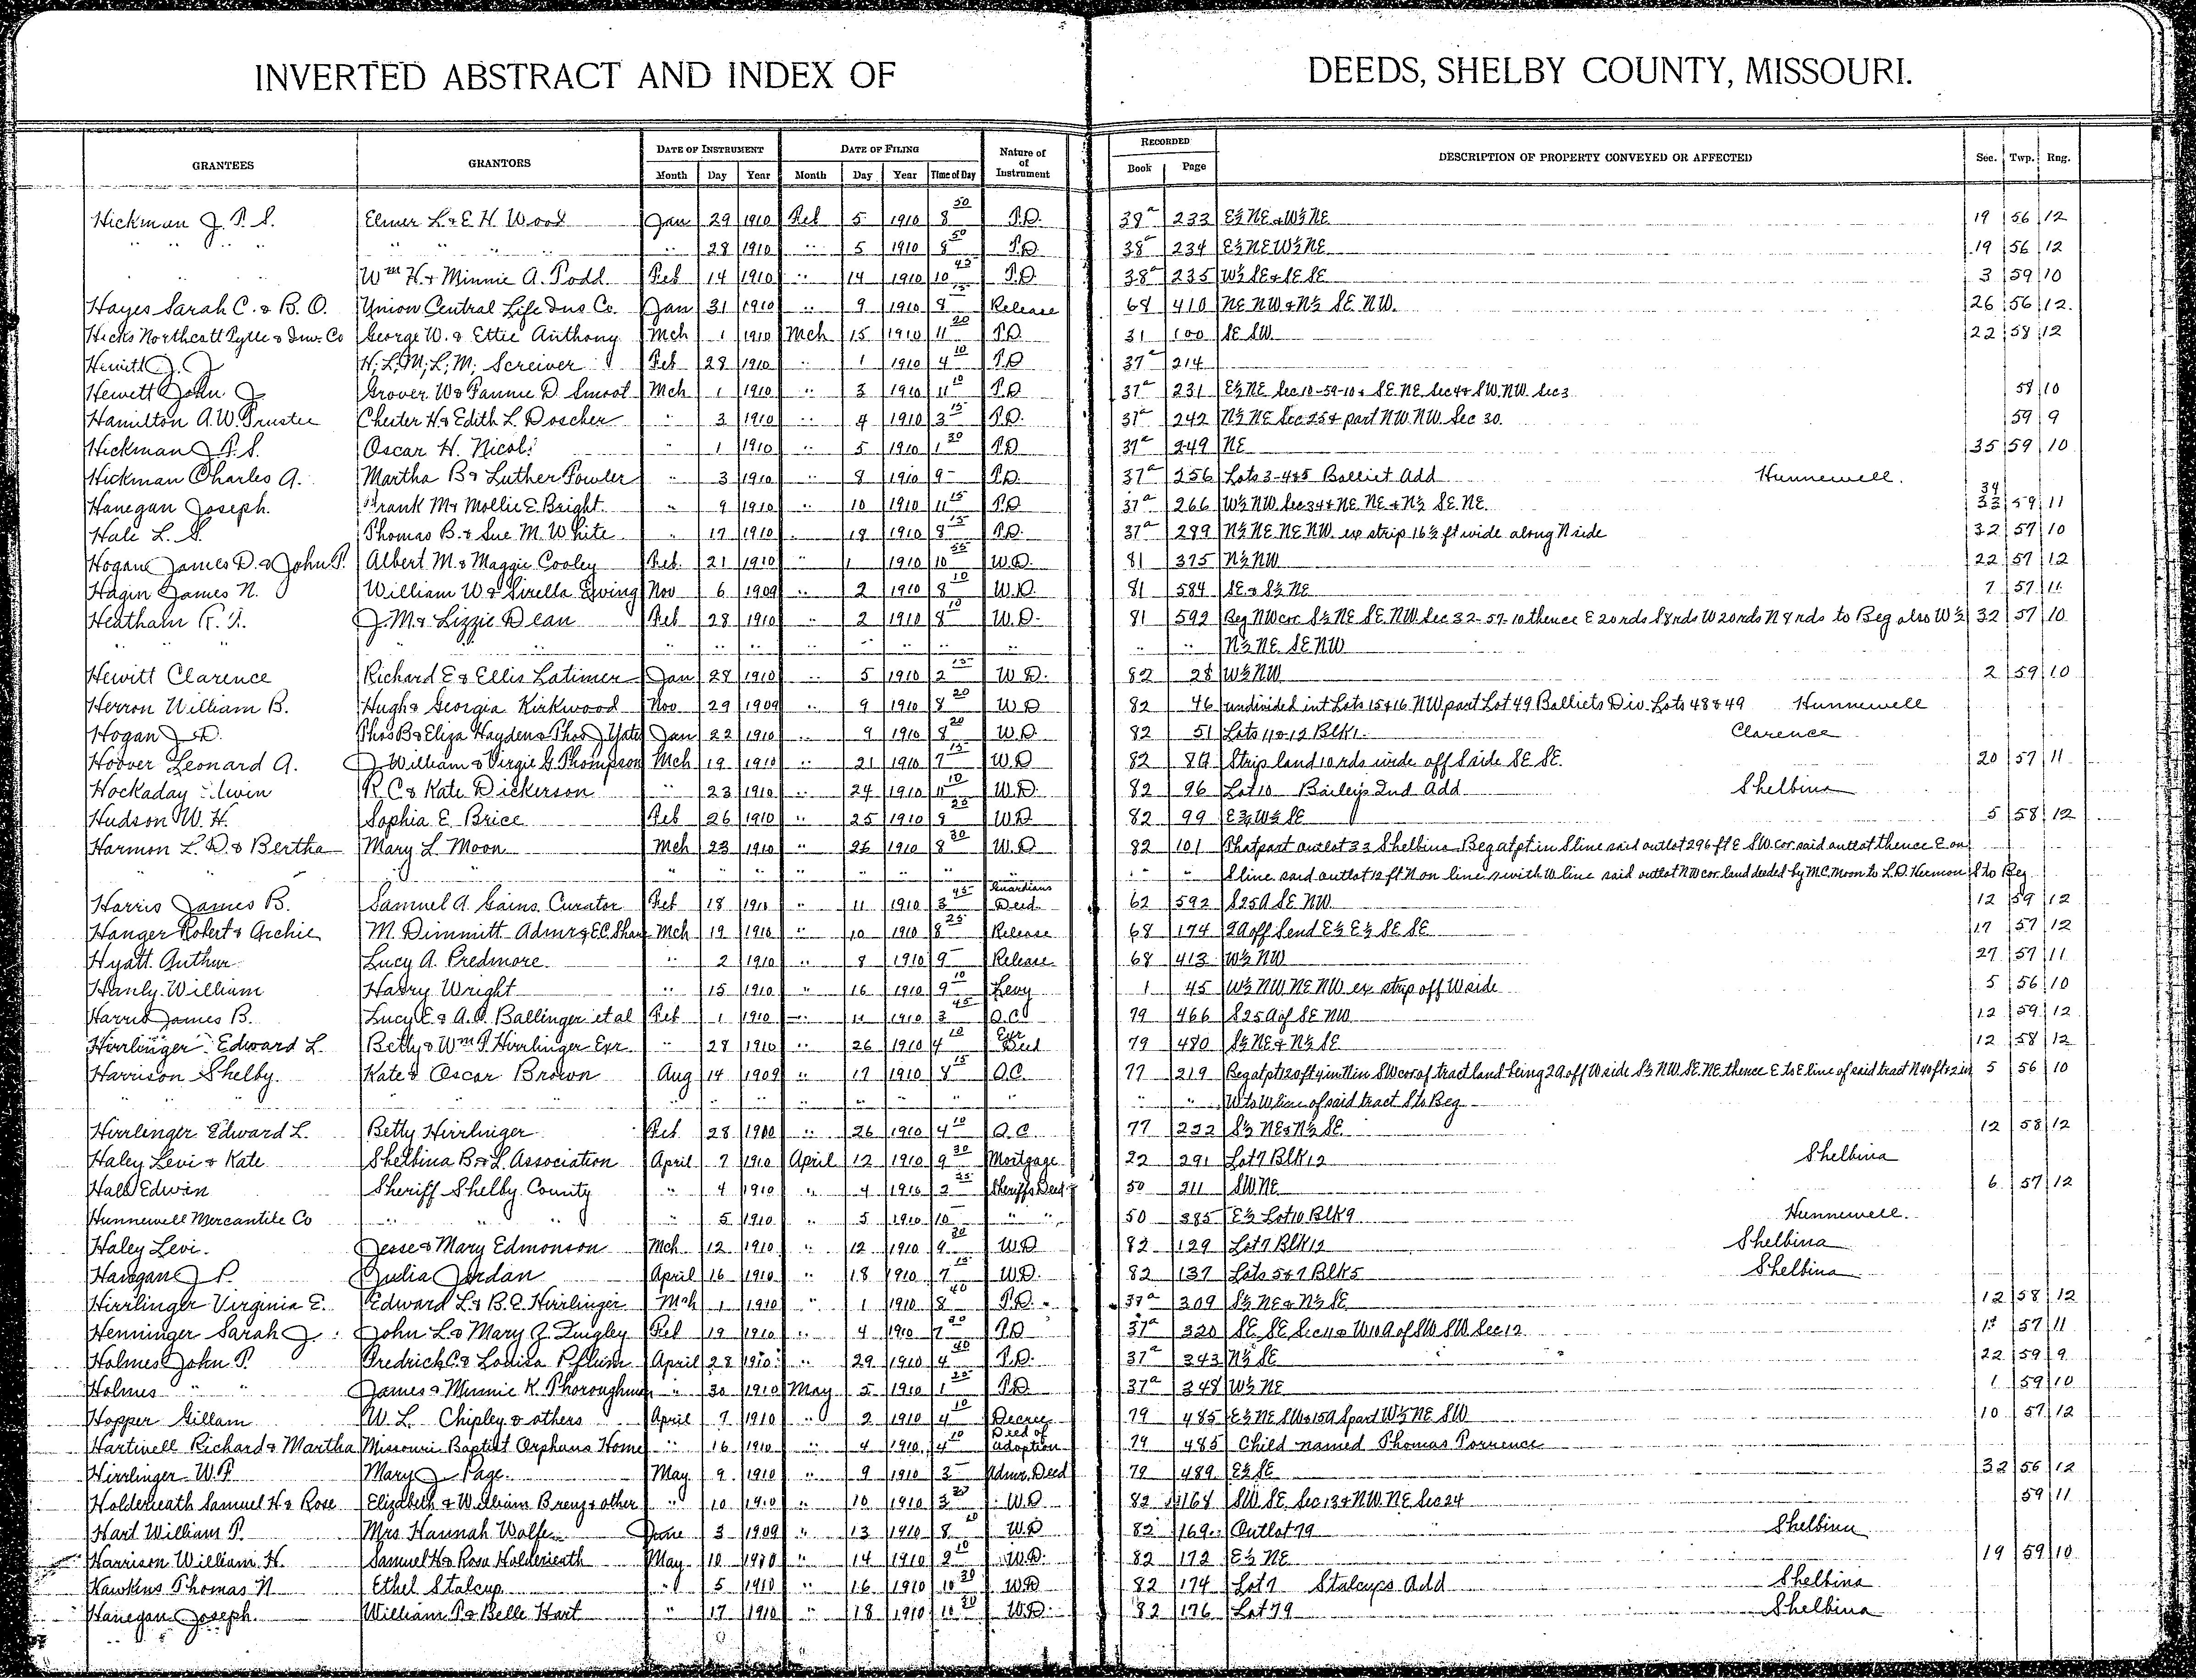 INVERTED ABSTRACT AND INDEX OF DEEDS, SHELBY COUNTY, MISSOURI.
GRANTEES GRANTORS DATE OF INSTRUMENT DATE OF FILING Nature of of Instrument RECORDED DESCRIPTION OF PROPERTY CONVEYED OR AFFECTED Sec. Twp. Rng.
Month Day Year Month Day Year Time of Day Book Page
Hickman J. T. S. Elmer L & E. H. Wood Jan 29 1910 Feb 5 1910 8 50 T.D. 38a 233 E½ NE & W½ NE 19 56 12
" " " " " " " " " 28 1910 " 5 1910 8 50 T.D. 38a 234 E½ NE W½ NE 19 56 12
" " " Wm H. & Minnie A. Todd Feb 14 1910 " 14 1910 10 45 T.D. 38a 235 W½ SE & SE SE 3 59 10
Hayes Sarah C. & B. O. Union Central Life Ins Co. Jan 31 1910 " 9 1910 8 15 Release 68 410 NE NW & N½ SE NW. 26 56 12
Hicks Northcott Tytle & Inv. Co George W. & Ettie Anthony Mch 1 1910 Mch 15 1910 11 20 T.D. 31 100 SE SW 22 58 12
Hewitt J. J. H; L; M; L; M; Screiver Feb 28 1910 " 1 1910 4 10 T.D 37a 214
Hewett John J Grover W & Fannie D. Smoot Mch 1 1910 " 3 1910 11 10 T.D 37a 231 E½ NE Sec 10-59-10 & SE NE Sec 4 & SW NW Sec 3 58 10
Hamilton A. W. Trustee Chester H. & Edith L. Doscher " 3 1910 " 4 1910 3 15 T.D. 37a 242 N½ NE Sec 25 & part NW NW Sec 30. 59 9
Hickman J. T. S. Oscar H. Nicol " 1 1910 " 5 1910 1 30 T.D 37a 249 NE 35 59 10
Hickman Charles A. Martha B & Luther Fowler " 3 1910 " 8 1910 9 - T.D. 37a 256 Lots 3-4 & 5 Balliet Add Hunnewell.
Hanegan Joseph. Frank M & Mollie E. Bright. " 9 1910 " 10 1910 11 15 T.D 37a 266 W½ NW Sec 34 & NE NE & N½ SE NE. 34 33 59 11
Hale L. S. Thomas B. & Sue M. White " 17 1910 " 18 1910 8 15 T.D. 37a 289 N½ NE NE NW. ex strip 16½ ft wide along N side 32 57 10
Hogan James D. & John T. Albert M. & Maggie Cooley Feb. 21 1910 " 1 1910 10 55 W.D. 81 375 N½ NW 22 57 12
Hagin James N. William W & Sirella Ewing Nov 6 1909 " 2 1910 8 10 W.D. 81 584 SE & S½ NE 7 57 11
Heatham J. M & Lizzie Dean Feb 28 1910 " 2 1910 8 10 W.D. 81 592 Beg NW cor S½ NE SE NW Sec 32-57-10 thence E 20 rds S 8 rds W 20 rds N 8 rds to Beg also W½ 32 57 10
" " " " " " " " " " " " N½ NE SE NW
Hewitt Clarence Richard E & Ellis Latimer Jan 28 1910 " 5 1910 2 15 W D. 82 28 W½ NW 2 59 10
Herron William B. Hugh & Georgia Kirkwood Nov 29 1909 " 9 1910 8 20 W D 82 46 undivided int Lots 15 & 16 NW part Lot 49 Balliets Div. Lots 48 & 49 Hunnewell
Hogan J. D. Thos B & Eliza Hayden & Thos J Yates Jan 22 1910 " 9 1910 8 20 W.D. 82 51 Lots 11 & 12 Blk 1. Clarence
Hoover Leonard A. J William & Virgie G. Thompson Mch 19 1910 " 21 1910 7 15 W.D 82 89 Strip land 10 rds wide off S side SE SE. 20 57 11
Hockaday Irwin R. C & Kate Dickerson " 23 1910 " 24 1910 11 10 W.D. 82 96 Lot 10 Baileys 2nd Add Shelbina
Hudson W. H. Sophia E. Brice Feb 26 1910 " 25 1910 9 25 W D 82 99 E¾ W½ SE 5 58 12
Harmon L. D. & Bertha Mary L Moon Mch 23 1910 " 26 1910 8 30 W.D 82 101 That part outlot 33 Shelbina Beg at pt in S line said outlot 296 ft E SW cor. said outlot thence E on
" " " " " " " " " " S line said outlot 12 ft N on line with W line said outlot NW cor. land deeded by M. C. Moon to L. D. Harmon S to Beg
Harris James B. Samuel A. Gains. Curator Feb 18 1910 " 11 1910 3 45 Guardians Deed 62 592 S 25 A SE NW 12 59 12
Hanger Robert & Archie M. Dimmitt Admr & E.C. Shaw Mch 19 1910 " 10 1910 8 25 Release 68 174 2 A off S end E½ E½ SE SE 17 57 12
Hyatt Arthur Lucy A. Predmore " 2 1910 " 8 1910 9 - Release 68 413 W½ NW 27 57 11
Hanly William Harry Wright " 15 1910 " 16 1910 9 10 Levy 1 45 W½ NW NE NW ex strip off W side 5 56 10
Harris James B. Lucy E. & A. P. Ballinger et al Feb 1 1910 " 11 1910 3 45 Q.C. 79 466 S 25 A of SE NW 12 59 12
Hirrlinger Edward L. Betty & Wm T. Hirrlinger Exr. " 28 1910 " 26 1910 4 10 Exr Deed 79 480 S½ NE & N½ SE 12 58 12
Harrison Shelby. Kate & Oscar Brown Aug 14 1909 " 17 1910 8 15 Q.C. 77 219 Beg at pt 120 ft 4 in N in SW cor of tract land being 2 A off W side S½ NW SE NE thence E to E line of said tract N 40 ft & 2 in 5 56 10
" " " " " " " " " " W to W line of said tract S to Beg
Hirrlinger Edward L. Betty Hirrlinger Feb 28 1910 " 26 1910 4 10 Q.C. 77 222 S½ NE & N½ SE 12 58 12
Haley Levi & Kate Shelbina B & L Association April 7 1910 April 12 1910 9 30 Mortgage 22 291 Lot 7 Blk 12 Shelbina
Hall Edwin Sheriff Shelby County " 4 1910 " 4 1910 2 25 Sheriffs Deed 50 211 SW NE 6 57 12
Hunnewell Mercantile Co " " " " 5 1910 " 5 1910 10 - " " 50 385 E½ Lot 10 Blk 9 Hunnewell.
Haley Levi. Jesse & Mary Edmonson Mch 12 1910 " 12 1910 9 30 W.D 82 129 Lot 7 Blk 12 Shelbina
Hanegan J P. Julia Jordan April 16 1910 " 18 1910 7 15 W.D. 82 137 Lots 5 & 7 Blk 5 Shelbina
Hirrlinger Virginia E. Edward L. & B. C. Hirrlinger Mch 1 1910 " 1 1910 8 40 T.D. 37a 309 S½ NE & N½ SE 12 58 12
Henninger Sarah J. John L. & Mary Z. Quigley Feb 19 1910 " 4 1910 7 30 T.D 37a 320 SE SE Sec 11 & W 10 A of SW SW Sec 12 57 11
Holmes John T. Fredrich C. & Louisa Pflum April 28 1910 " 29 1910 4 40 T.D. 37a 343 N½ SE 22 59 9
Holmes " " James & Minnie K. Thoroughman " 30 1910 May 5 1910 1 25 T.D. 37a 348 W½ NE 1 59 10
Hopper Gillam W. L. Chipley & others April 7 1910 " 2 1910 4 10 Decree 79 485 E½ NE SW & 15 A S part W½ NE SW 10 57 12
Hartwell Richard & Martha Missouri Baptist Orphans Home " 16 1910 " 4 1910 4 10 Deed of Adoption 79 485 Child named Thomas Torrence
Hirrlinger W. P. Mary J Page. May 9 1910 " 9 1910 3 - Admr. Deed 79 489 E½ SE 32 56 12
Holderieath Samuel H & Rose Elizabeth & William Breng & other " 10 1910 " 10 1910 3 20 W.D 82 164 SW SE Sec 13 & NW NE Sec 24 59 11
Hart William P. Mrs Hannah Wolfe June 3 1909 " 13 1910 8 20 W.D 82 169 Outlot 79 Shelbina
Harrison William H. Samuel H & Rosa Holderieath May 10 1910 " 14 1910 2 10 W.D. 82 172 E½ NE 19 59 10
Hawkins Thomas N Ethel Stalcup " 5 1910 " 16 1910 10 30 W.D 82 174 Lot 7 Stalcups Add Shelbina
Hanegan Joseph. William P. & Belle Hart " 17 1910 " 18 1910 10 30 W.D. 82 176 Lot 79 Shelbina